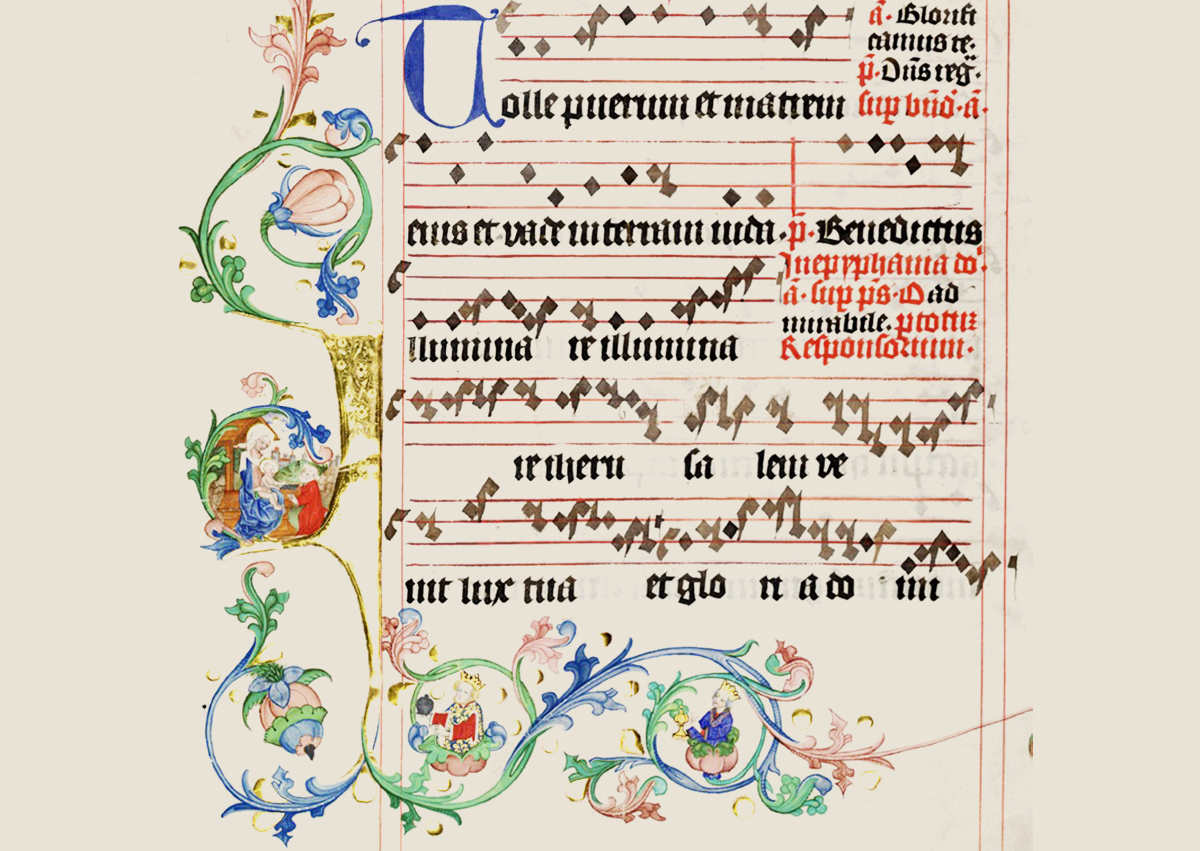 ā. Glorifi
camus te.
p̄. Dn̄s reg̃.
Tolle puerum et matrem sup bn̄d. ā.
eius et vade in terram iuda. p̄. Benedictus
In epyphania do.
ā. sup p̄s. O ad
mirabile. p̄ totū
Illumina re illumina Responsorium.
re iheru sa lem ve
nit lux tua et glo ri a do mi